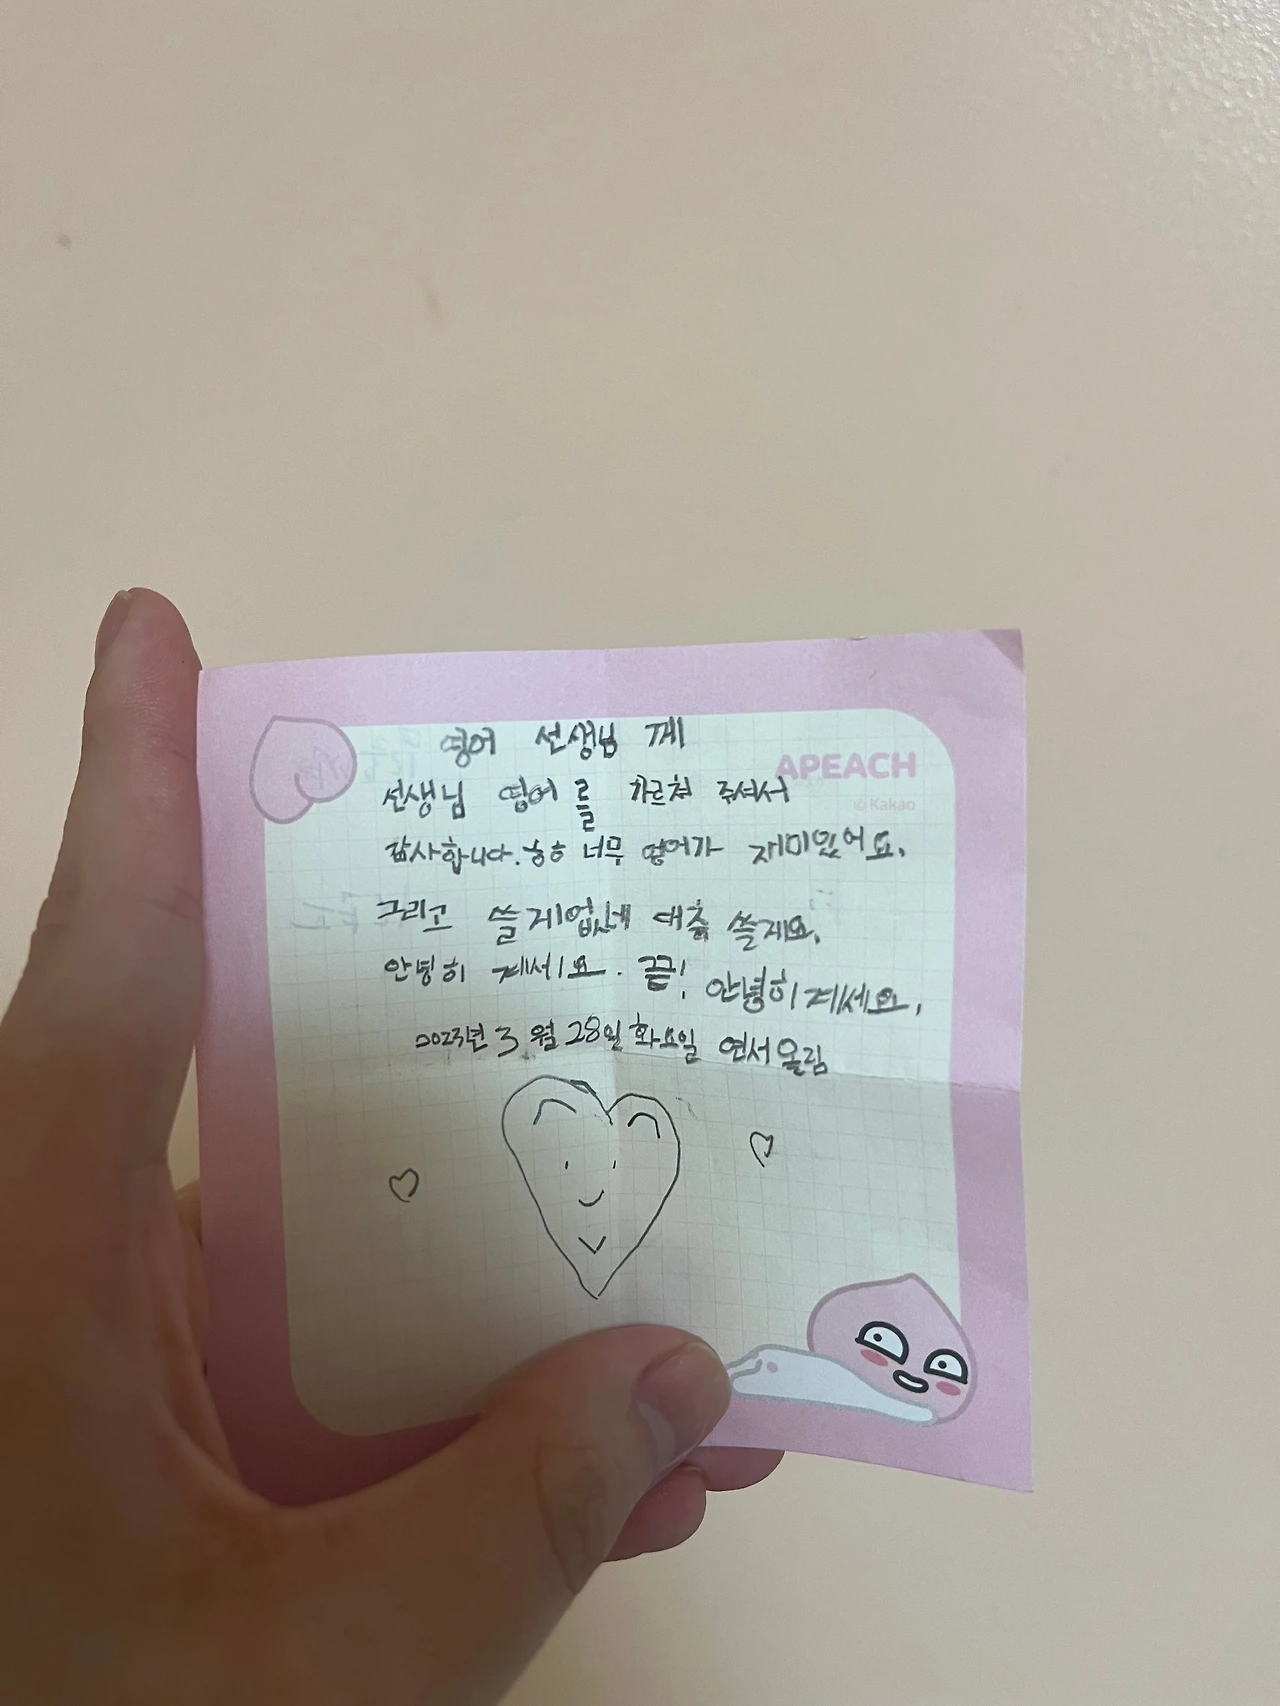 영어 선생님 께
APEACH
©Kakao
선생님 영어를 가르쳐 주셔서
감사합니다. ㅎㅎ 너무 영어가 재미있어요.
그리고 쓸게없네 대충 쓸게요.
안녕히 계세요. 끝! 안녕히계세요.
2023년 3월 28일 화요일 연서올림